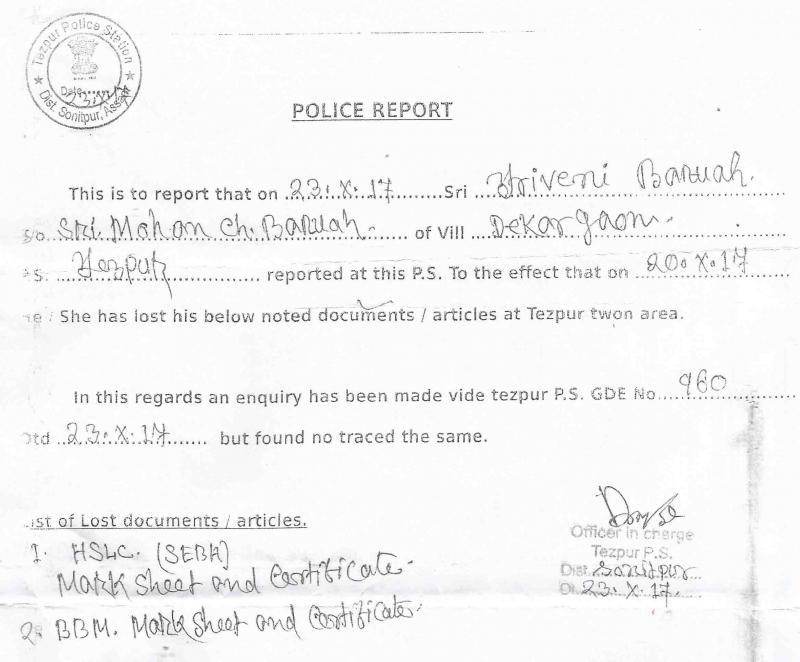 Tezpur Police Station
Date 23.X.17
Dist. Sonitpur, Assam
POLICE REPORT
This is to report that on 23.X.17 Sri Triveni Baruah.
S/o Sri Mohan Ch. Baruah. of Vill Dekargaon.
P.S. Tezpur reported at this P.S. To the effect that on 20.X.17
He / She has lost his below noted documents / articles at Tezpur twon area.
In this regards an enquiry has been made vide tezpur P.S. GDE No 960
Dtd 23.X.17 but found no traced the same.
List of Lost documents / articles.
1. HSLC. (SEBA)
Mark Sheet and Certificate.
2. BBM. Mark Sheet and Certificate.
Officer in charge
Tezpur P.S.
Dist. Sonitpur
Dt. 23.X.17.